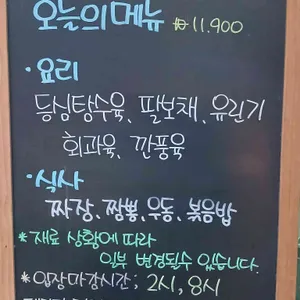 오늘의메뉴 ₩11.900
· 요리
등심탕수육, 팔보채, 유린기
회과육, 깐풍육
· 식사
짜장, 짬뽕, 우동, 볶음밥
* 재료 상황에 따라
일부 변경될수 있습니다.
* 입장마감시간; 2시, 8시